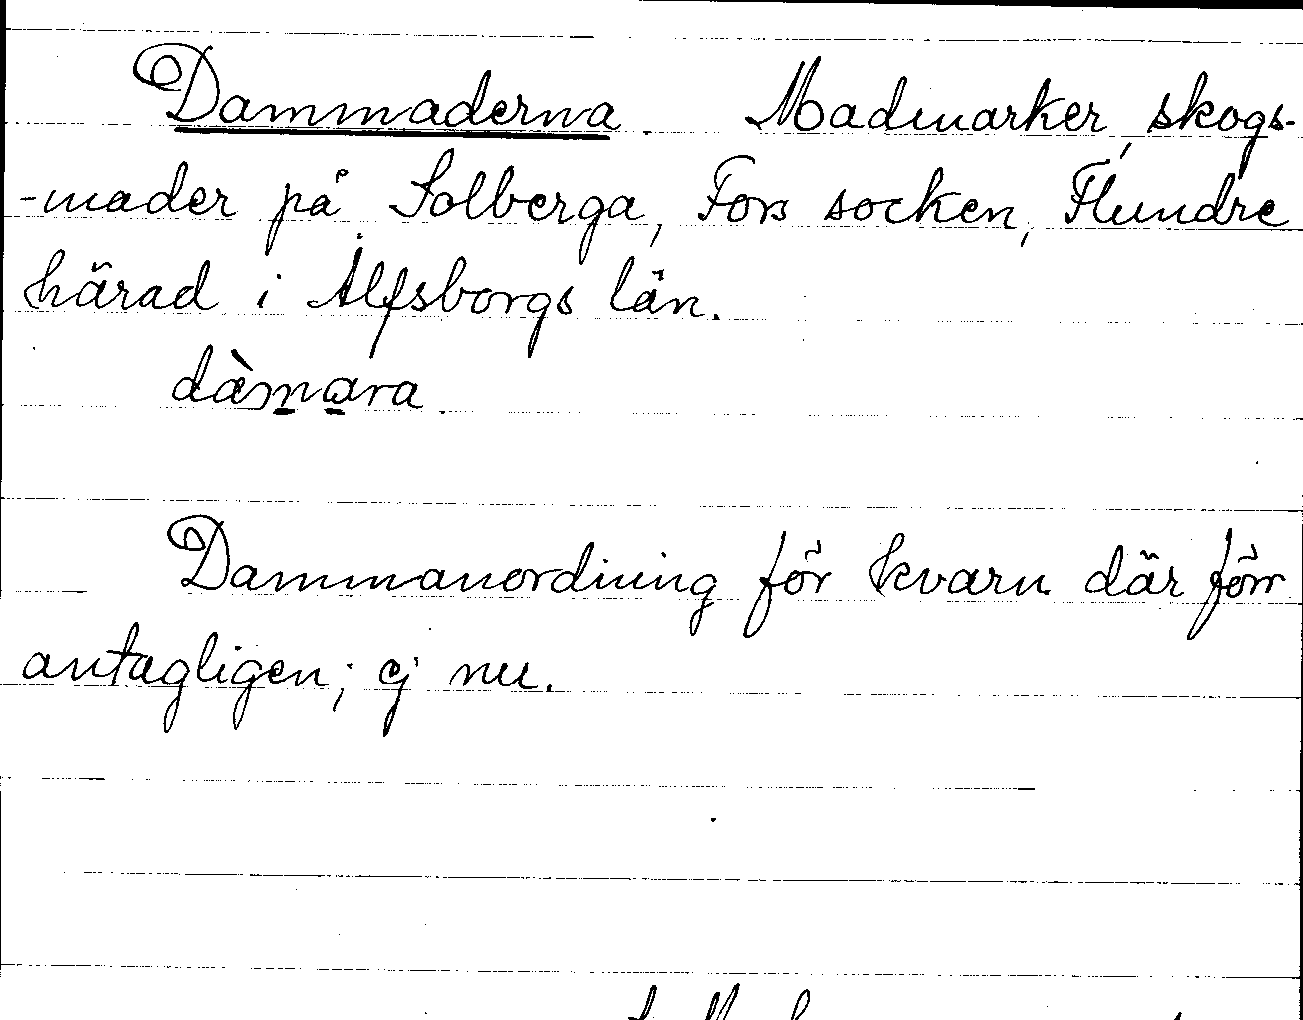 Dammaderna. Madmarker, skogs-
-mader på Solberga, Fors socken, Flundre
härad i Älfsborgs län.
dàmara.
Dammanordning för kvarn där förr
antagligen; ej nu.